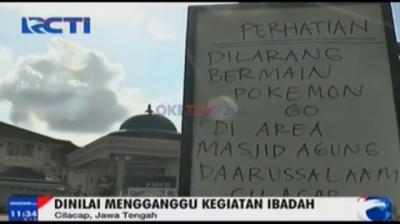 RCTI
PERHATIAN
DILARANG
BERMAIN
POKEMON
GO
DI AREA
MASJID AGUNG
DAARUSSALAAM
CILACAP
OKEZONE.com
DINILAI MENGGANGGU KEGIATAN IBADAH
11:34
Cilacap, Jawa Tengah